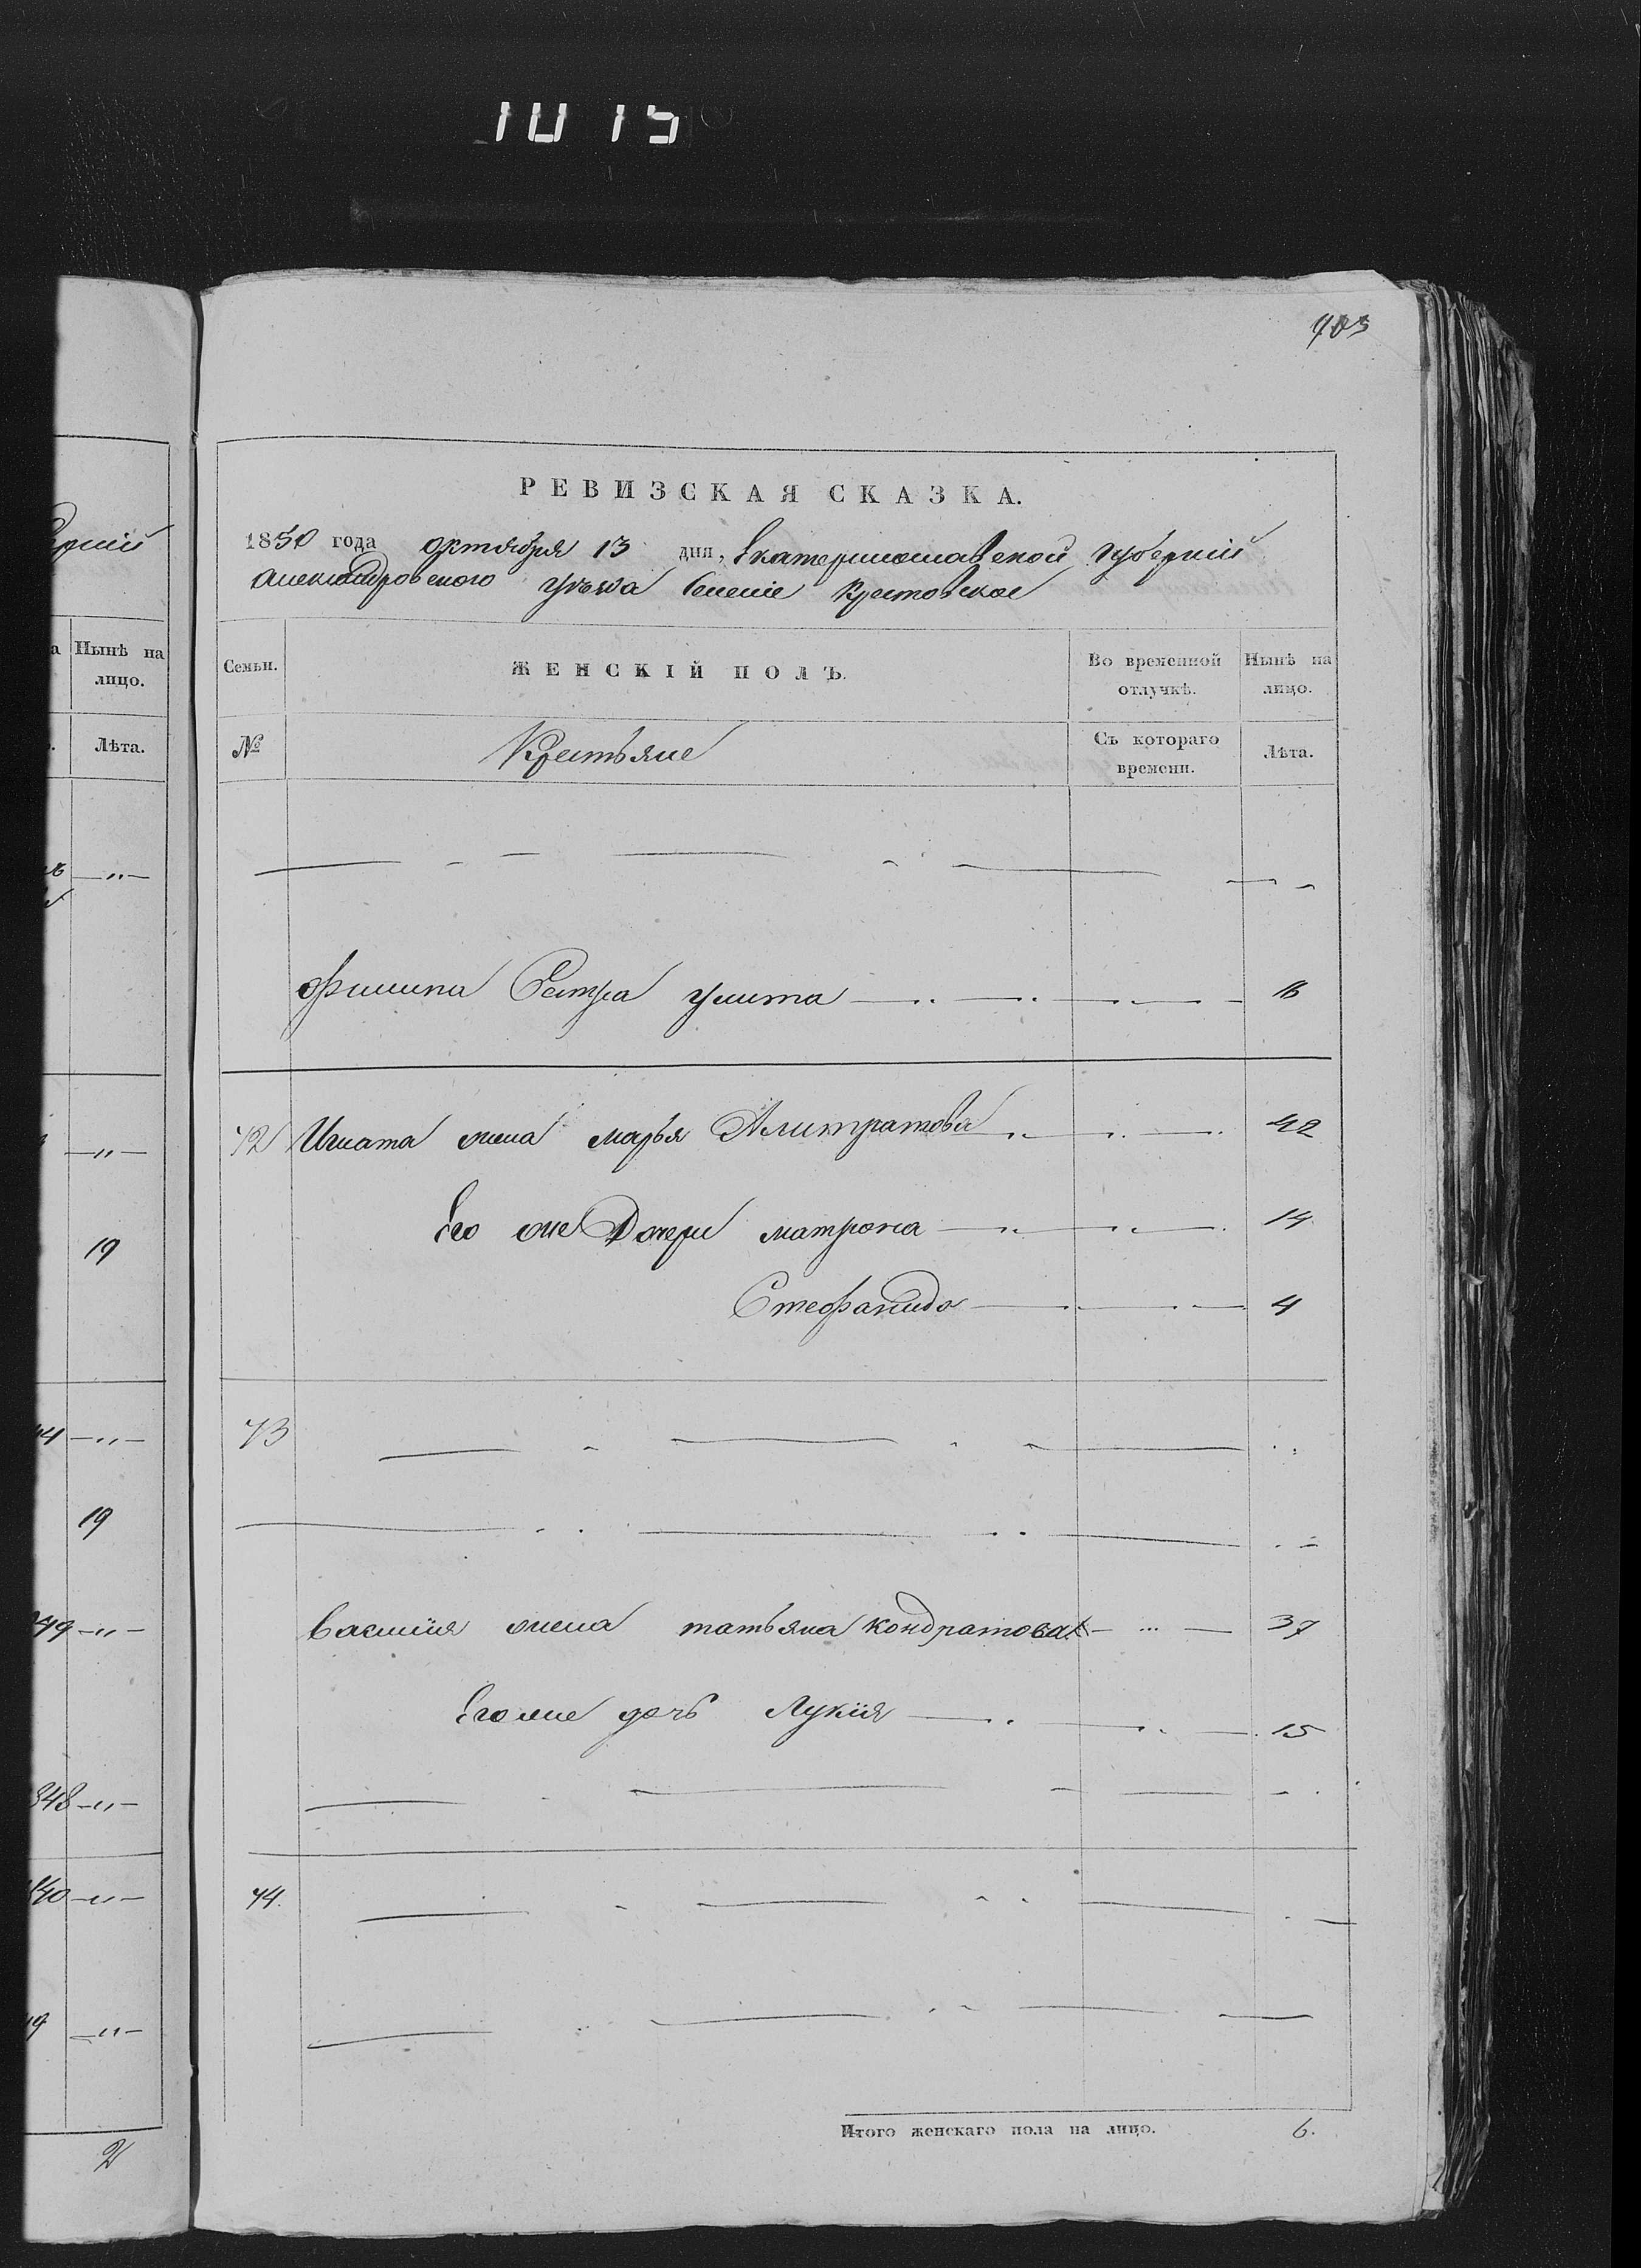 10 15
403
РЕВИЗСКАЯ СКАЗКА.
1850 года октября 13 дня, Екатеринославской губернiи
Александровского уезда Селенiе Крестовское
Нынѣ на лицо.
Семьи.
ЖЕНСКIЙ ПОЛЪ.
Во временной отлучкѣ.
Нынѣ на лицо.
Лѣта.
№
Крестьяне
Съ котораго времени.
Лѣта.
Филипа Сестра улита 16
72 Игната жена марья Алимпратова 42
19
Его же Дочери матрона 14
Стефанида 4
73
19
Василiя жена татьяна кондратова 37
Его же дочь Лукiя 15
74.
Итого женскаго пола на лицо. 6.
2